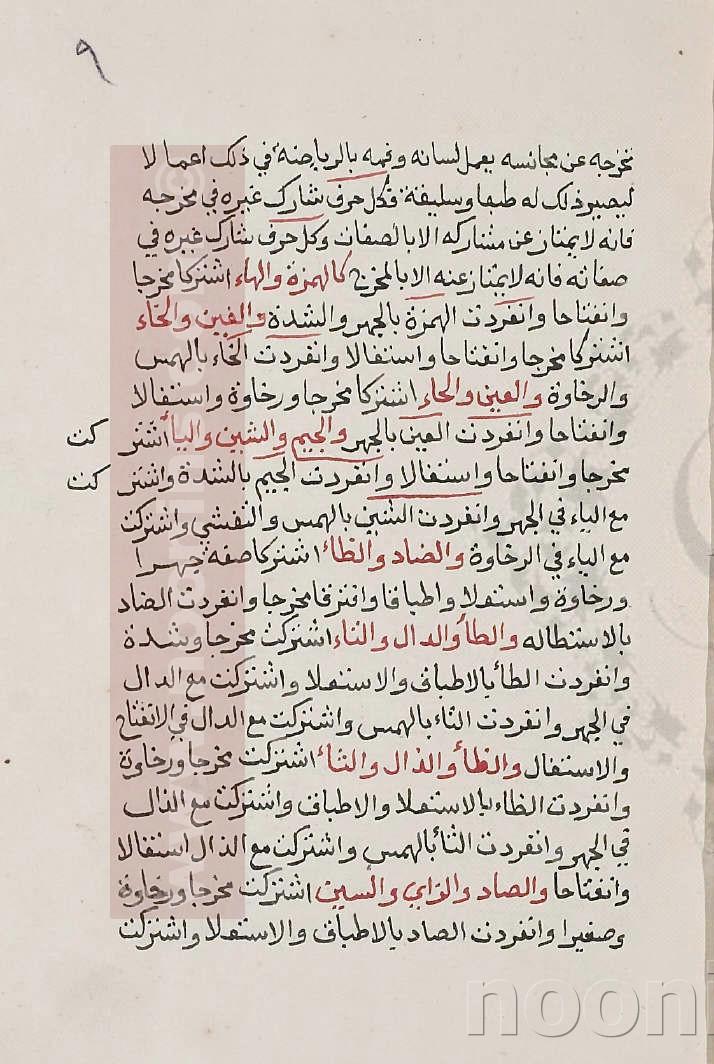 ٩
مخرجه عن مجانسه يعمل لسانه وفمه بالرياضة في ذلك اعمالا
ليصير ذلك له طبعا وسليقة فكل حرف شارك غيره في مخرجه
فانه لا يمتاز عن مشاركه الا بالصفات وكل حرف شارك غيره في
صفاته فانه لا يمتاز عنه الا بالمخرج كالهمزة والهاء اشتركا مخرجا
وانفتاحا وانفردت الهمزة بالجهر والشدة والغين والخاء
اشتركا مخرجا وانفتاحا واستفالا وانفردت الخاء بالهمس
والرخاوة والعين والحاء اشتركا مخرجا ورخاوة واستفالا
وانفتاحا وانفردت العين بالجهر والجيم والشين واليأ اشتر كت
مخرجا وانفتاحا واستفالا وانفردت الجيم بالشدة واشتر كت
مع الياء في الجهر وانفردت الشين بالهمس والتفشي واشتركت
مع الياء في الرخاوة والضاد والظأ اشتركا صفة جهرا
ورخاوة واستعلا واطباقا وافترقا مخرجا وانفردت الضاد
بالاستطاله والطأ والدال والتاء اشتركت مخرجا وشدة
وانفردت الطأ بالاطباق والاستعلا واشتركت مع الدال
في الجهر وانفردت التاء بالهمس واشتركت مع الدال في الانفتاح
والاستفال والظأ والذال والثأ اشتركت مخرجا ورخاوة
وانفردت الظاء بالاستعلا والاطباق واشتركت مع الذال
في الجهر وانفردت الثأ بالهمس واشتركت مع الذال استفالا
وانفتاحا والصاد والزاي والسين اشتركت مخرجا ورخاوة
وصفيرا وانفردت الصاد بالاطباق والاستعلا واشتركت